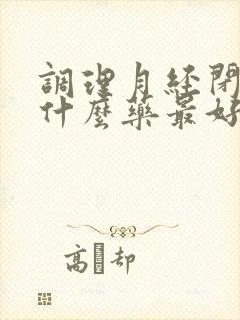 調理月经閉
什麼藥最好
高 却